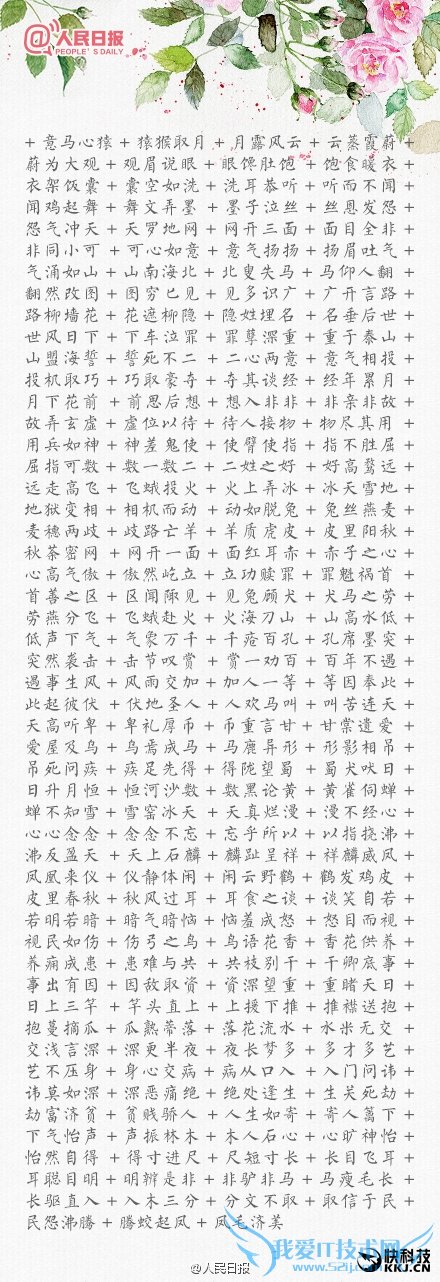 人民日报
PEOPLE'S DAILY
+ 意马心猿 + 猿猴取月 + 月露风云 + 云蒸霞蔚 +
蔚为大观 + 观眉说眼 + 眼馋肚饱 + 饱食暖衣 +
衣架饭囊 + 囊空如洗 + 洗耳恭听 + 听而不闻 +
闻鸡起舞 + 舞文弄墨 + 墨子泣丝 + 丝恩发怨 +
怨气冲天 + 天罗地网 + 网开三面 + 面目全非 +
非同小可 + 可心如意 + 意气扬扬 + 扬眉吐气 +
气涌如山 + 山南海北 + 北叟失马 + 马仰人翻 +
翻然改图 + 图穷匕见 + 见多识广 + 广开言路 +
路柳墙花 + 花遮柳隐 + 隐姓埋名 + 名垂后世 +
世风日下 + 下车泣罪 + 罪孽深重 + 重于泰山 +
山盟海誓 + 誓死不二 + 二心两意 + 意气相投 +
投机取巧 + 巧取豪夺 + 夺其谈经 + 经年累月 +
月下花前 + 前思后想 + 想入非非 + 非亲非故 +
故弄玄虚 + 虚位以待 + 待人接物 + 物尽其用 +
用兵如神 + 神差鬼使 + 使臂使指 + 指不胜屈 +
屈指可数 + 数一数二 + 二姓之好 + 好高骛远 +
远走高飞 + 飞蛾投火 + 火上弄冰 + 冰天雪地 +
地狱变相 + 相机而动 + 动如脱兔 + 兔丝燕麦 +
麦穗两歧 + 歧路亡羊 + 羊质虎皮 + 皮里阳秋 +
秋荼密网 + 网开一面 + 面红耳赤 + 赤子之心 +
心高气傲 + 傲然屹立 + 立功赎罪 + 罪魁祸首 +
首善之区 + 区闻陬见 + 见兔顾犬 + 犬马之劳 +
劳燕分飞 + 飞蛾赴火 + 火海刀山 + 山高水低 +
低声下气 + 气象万千 + 千疮百孔 + 孔席墨突 +
突然袭击 + 击节叹赏 + 赏一劝百 + 百年不遇 +
遇事生风 + 风雨交加 + 加人一等 + 等因奉此 +
此起彼伏 + 伏地圣人 + 人欢马叫 + 叫苦连天 +
天高听卑 + 卑礼厚币 + 币重言甘 + 甘棠遗爱 +
爱屋及乌 + 乌焉成马 + 马鹿异形 + 形影相吊 +
吊死问疾 + 疾足先得 + 得陇望蜀 + 蜀犬吠日 +
日升月恒 + 恒河沙数 + 数黑论黄 + 黄雀伺蝉 +
蝉不知雪 + 雪窑冰天 + 天真烂漫 + 漫不经心 +
心心念念 + 念念不忘 + 忘乎所以 + 以指挠沸 +
沸反盈天 + 天上石麟 + 麟趾呈祥 + 祥麟威凤 +
凤凰来仪 + 仪静体闲 + 闲云野鹤 + 鹤发鸡皮 +
皮里春秋 + 秋风过耳 + 耳食之谈 + 谈笑自若 +
若明若暗 + 暗气暗恼 + 恼羞成怒 + 怒目而视 +
视民如伤 + 伤弓之鸟 + 鸟语花香 + 香花供养 +
养痈成患 + 患难与共 + 共枝别干 + 干卿底事 +
事出有因 + 因敌取资 + 资深望重 + 重睹天日 +
日上三竿 + 竿头直上 + 上援下推 + 推襟送抱 +
抱蔓摘瓜 + 瓜熟蒂落 + 落花流水 + 水米无交 +
交浅言深 + 深更半夜 + 夜长梦多 + 多才多艺 +
艺不压身 + 身心交病 + 病从口入 + 入门问讳 +
讳莫如深 + 深恶痛绝 + 绝处逢生 + 生关死劫 +
劫富济贫 + 贫贱骄人 + 人生如寄 + 寄人篱下 +
下气怡声 + 声振林木 + 木人石心 + 心旷神怡 +
怡然自得 + 得寸进尺 + 尺短寸长 + 长目飞耳 +
耳聪目明 + 明辨是非 + 非驴非马 + 马瘦毛长 +
长驱直入 + 入木三分 + 分文不取 + 取信于民 +
民怨沸腾 + 腾蛟起凤 + 凤毛济美
@人民日报
我爱IT技术网
www.52ij.com
快科技
KKJ.CN